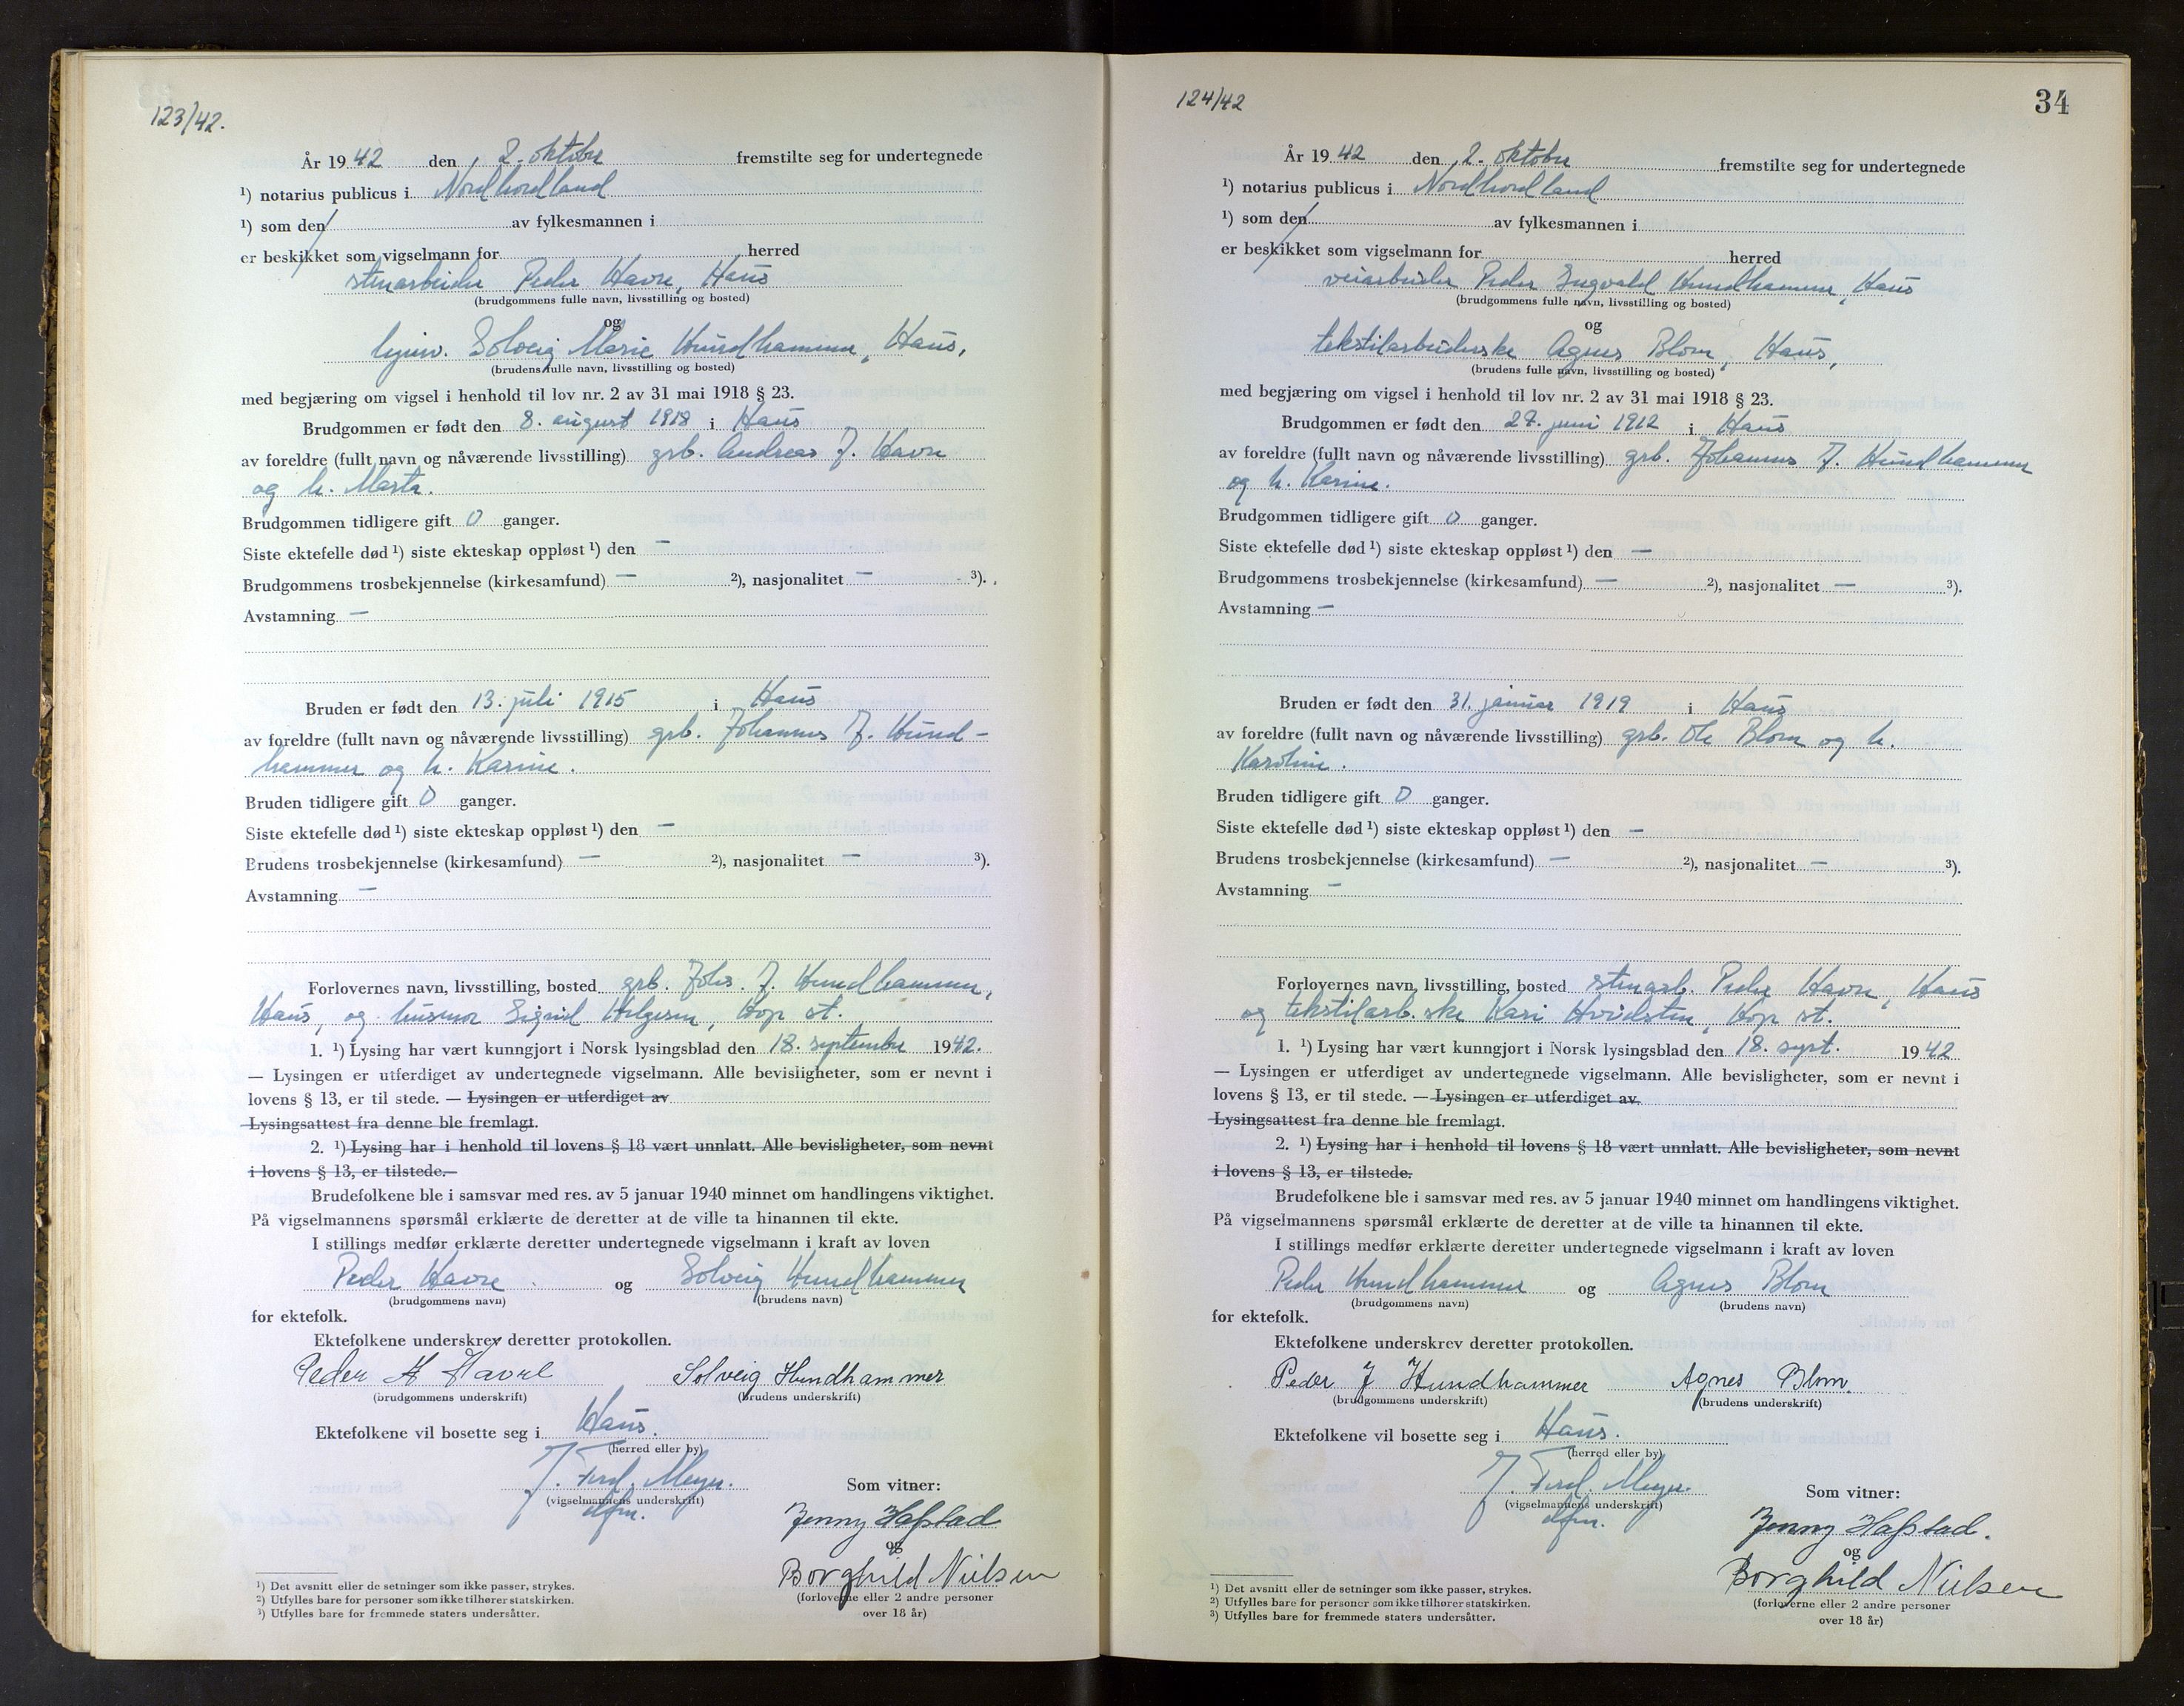 123/42.
År 19 42 den 2. oktober fremstilte seg for undertegnede
¹) notarius publicus i Nordhordland
¹) som den av fylkesmannen i
er beskikket som vigselmann for herred
stenarbeider Peder Havre, Haus
(brudgommens fulle navn, livsstilling og bosted)
og
hjemv. Solveig Marie Hundhammer, Haus,
(brudens fulle navn, livsstilling og bosted)
med begjæring om vigsel i henhold til lov nr. 2 av 31 mai 1918 § 23.
Brudgommen er født den 8. august 1918 i Haus
av foreldre (fullt navn og nåværende livsstilling) grb. Andreas J. Havre
og h. Marta.
Brudgommen tidligere gift 0 ganger.
Siste ektefelle død ¹) siste ekteskap oppløst ¹) den —
Brudgommens trosbekjennelse (kirkesamfund) — ²), nasjonalitet — ³).
Avstamning —
Bruden er født den 13. juli 1915 i Haus
av foreldre (fullt navn og nåværende livsstilling) grb. Johannes J. Hund-
hammer og h. Karine.
Bruden tidligere gift 0 ganger.
Siste ektefelle død ¹) siste ekteskap oppløst ¹) den —
Brudens trosbekjennelse (kirkesamfund) — ²), nasjonalitet — ³).
Avstamning —
Forlovernes navn, livsstilling, bosted grb. Johs. J. Hundhammer,
Haus, og husmor Sigrid Helgesen, Hop st.
1. ¹) Lysing har vært kunngjort i Norsk lysingsblad den 18. september 1942.
— Lysingen er utferdiget av undertegnede vigselmann. Alle bevisligheter, som er nevnt i
lovens § 13, er til stede. — Lysingen er utferdiget av
Lysingsattest fra denne ble fremlagt.
2. ¹) Lysing har i henhold til lovens § 18 vært unnlatt. Alle bevisligheter, som nevnt
i lovens § 13, er tilstede.—
Brudefolkene ble i samsvar med res. av 5 januar 1940 minnet om handlingens viktighet.
På vigselmannens spørsmål erklærte de deretter at de ville ta hinannen til ekte.
I stillings medfør erklærte deretter undertegnede vigselmann i kraft av loven
Peder Havre og Solveig Hundhammer
(brudgommens navn) (brudens navn)
for ektefolk.
Ektefolkene underskrev deretter protokollen.
Peder A Havre Solveig Hundhammer
(brudgommens underskrift) (brudens underskrift)
Ektefolkene vil bosette seg i Haus.
(herred eller by)
J. Ferd. Meyer.
(vigselmannens underskrift)
dfm.
Som vitner:
Jenny Hafstad
og
Borghild Nielsen
(forloverne eller 2 andre personer
over 18 år)
¹) Det avsnitt eller de setninger som ikke passer, strykes.
²) Utfylles bare for personer som ikke tilhører statskirken.
³) Utfylles bare for fremmede staters undersåtter.
124/42
34
År 19 42 den 2. oktober fremstilte seg for undertegnede
¹) notarius publicus i Nordhordland
¹) som den av fylkesmannen i
er beskikket som vigselmann for herred
veiarbeider Peder Ingvald Hundhammer, Haus
(brudgommens fulle navn, livsstilling og bosted)
og
tekstilarbeiderske Agnes Blom, Haus,
(brudens fulle navn, livsstilling og bosted)
med begjæring om vigsel i henhold til lov nr. 2 av 31 mai 1918 § 23.
Brudgommen er født den juni 1912 i Haus
av foreldre (fullt navn og nåværende livsstilling) grb. Johannes J. Hundhammer
og h. Karine.
Brudgommen tidligere gift 0 ganger.
Siste ektefelle død ¹) siste ekteskap oppløst ¹) den —
Brudgommens trosbekjennelse (kirkesamfund) — ²), nasjonalitet — ³).
Avstamning —
Bruden er født den 31. januar 1919 i Haus
av foreldre (fullt navn og nåværende livsstilling) grb. Ole Blom og h.
Karoline.
Bruden tidligere gift 0 ganger.
Siste ektefelle død ¹) siste ekteskap oppløst ¹) den —
Brudens trosbekjennelse (kirkesamfund) — ²), nasjonalitet — ³).
Avstamning —
Forlovernes navn, livsstilling, bosted stenarb. Peder Havre, Haus
og tekstilarb.ske Kari Hvidsten, Hop st.
1. ¹) Lysing har vært kunngjort i Norsk lysingsblad den 18. sept. 1942
— Lysingen er utferdiget av undertegnede vigselmann. Alle bevisligheter, som er nevnt i
lovens § 13, er til stede. — Lysingen er utferdiget av
Lysingsattest fra denne ble fremlagt.
2. ¹) Lysing har i henhold til lovens § 18 vært unnlatt. Alle bevisligheter, som nevnt
i lovens § 13, er tilstede.
Brudefolkene ble i samsvar med res. av 5 januar 1940 minnet om handlingens viktighet.
På vigselmannens spørsmål erklærte de deretter at de ville ta hinannen til ekte.
I stillings medfør erklærte deretter undertegnede vigselmann i kraft av loven
Peder Hundhammer og Agnes Blom
(brudgommens navn) (brudens navn)
for ektefolk.
Ektefolkene underskrev deretter protokollen.
Peder J Hundhammer Agnes Blom.
(brudgommens underskrift) (brudens underskrift)
Ektefolkene vil bosette seg i Haus.
(herred eller by)
J. Ferd. Meyer.
(vigselmannens underskrift)
dfm.
Som vitner:
Jenny Hafstad.
og
Borghild Nielsen
(forloverne eller 2 andre personer
over 18 år)
¹) Det avsnitt eller de setninger som ikke passer, strykes.
²) Utfylles bare for personer som ikke tilhører statskirken.
³) Utfylles bare for fremmede staters undersåtter.